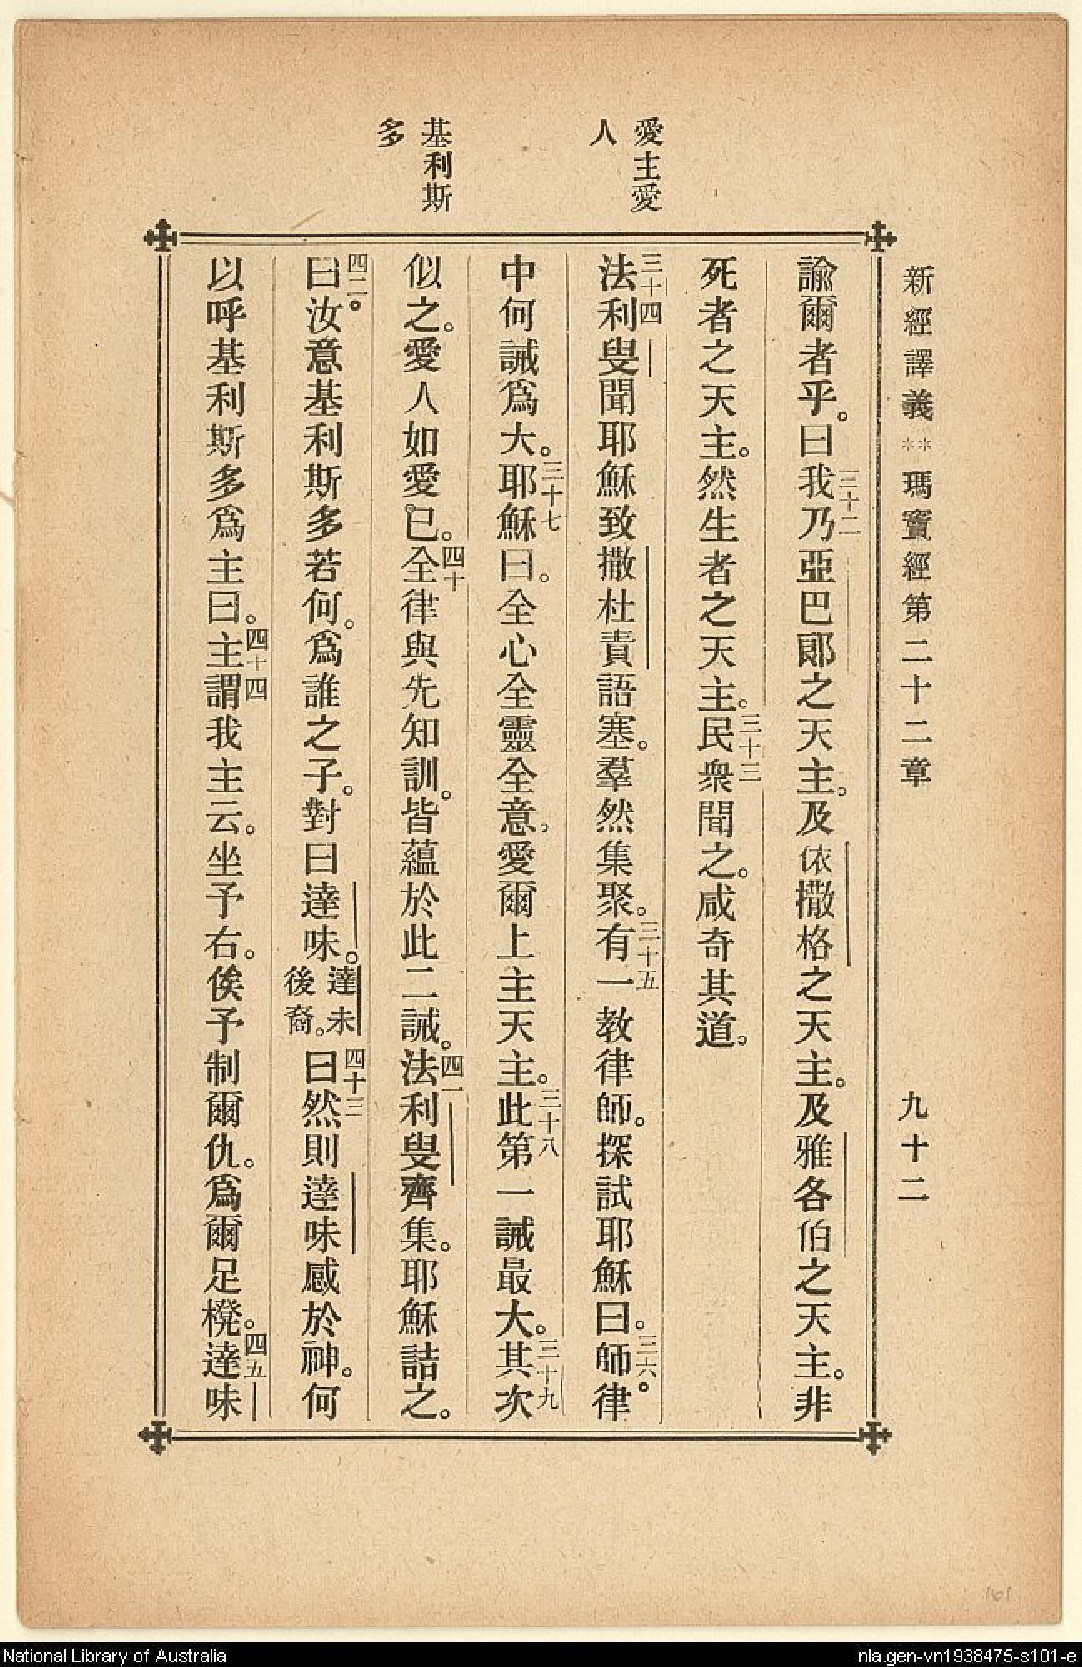 新經譯義**瑪竇經第二十二章 九十二
愛主愛
人
基利斯
多
諭爾者乎。曰三十二我乃亞巴郎之天主。及依撒格之天主。及雅各伯之天主。非
死者之天主。然生者之天主。三十三民衆聞之。咸奇其道。
三十四法利叟聞耶穌致撒杜責語塞。羣然集聚。三十五有一教律師。探試耶穌曰。三六。師律
中何誡爲大。三十七耶穌曰。全心全靈全意。愛爾上主天主。三十八此第一誡最大。三十九其次
似之。愛人如愛己。四十全律與先知訓。皆蘊於此二誡。四一法利叟齊集。耶穌詰之。
四二。曰汝意基利斯多若何。爲誰之子。對曰達味。達未後裔。四十三曰然則達味感於神。何
以呼基利斯多爲主曰。四十四主謂我主云。坐予右。俟予制爾仇。爲爾足櫈。四五達味
National Library of Australia
nla.gen-vn1938475-s101-e